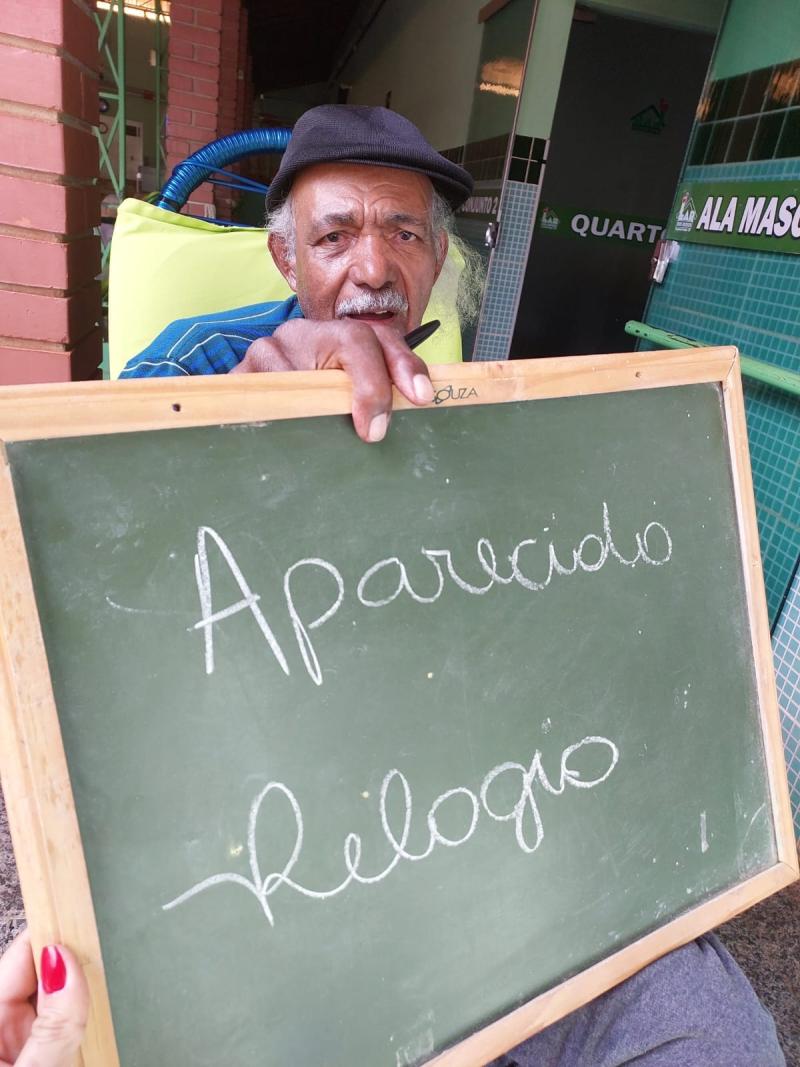 CONJUNTO 2
QUARTO
LAR
ALA MASC
SOUZA
Aparecido
Relogio